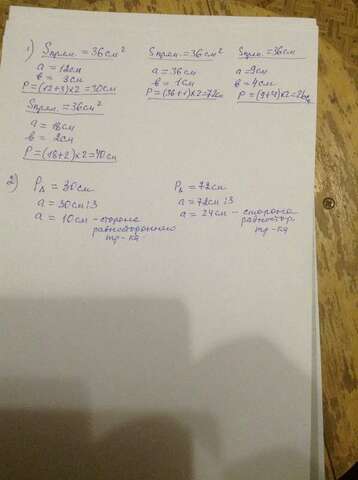 1) Sпрям. = 36 см²
a = 12 см
в = 3 см
P = (12+3)×2 = 30 см
Sпрям. = 36 см²
a = 36 см
в = 1 см
P = (36+1)×2 = 72 см
Sпрям. = 36 см
a = 9 см
в = 4 см
P = (9+4)×2 = 26 см
Sпрям. = 36 см²
a = 18 см
в = 2 см
P = (18+2)×2 = 40 см
2) P△ = 30 см
a = 30 см : 3
a = 10 см – сторона
равностороннего
тр-ка
P△ = 72 см
a = 72 см : 3
a = 24 см – сторона
равностор
тр-ка